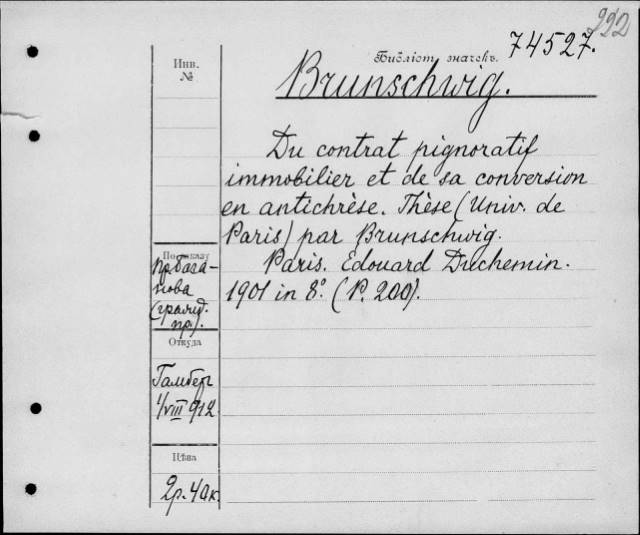 222
74527.
Библіот. значекъ.
Инв.
№
Brunschwig.
Du contrat pignoratif
immobilier et de sa conversion
en antichrèse. Thèse (Univ. de
Paris) par Brunschwig.
Paris. Edouard Duchemin.
1901 in 8.° (P. 200).
По заказу
(гражд.
пр.).
Откуда
Гамберг
1/VIII 912
Цѣна
2р. 40к.